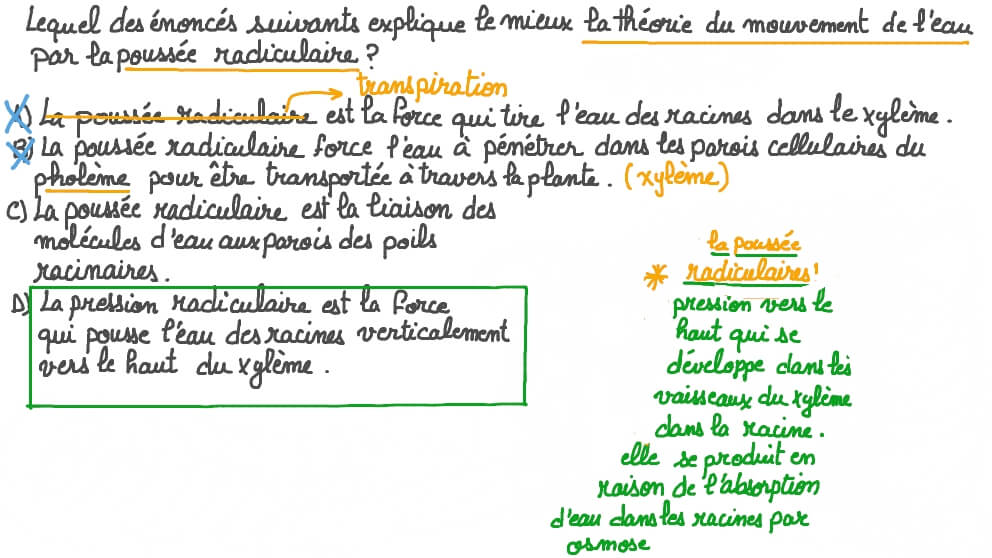 Lequel des énoncés suivants explique le mieux la théorie du mouvement de l'eau
par la poussée radiculaire ?
transpiration
A) La poussée radiculaire est la force qui tire l'eau des racines dans le xylème.
B) La poussée radiculaire force l'eau à pénétrer dans les parois cellulaires du
pholème pour être transportée à travers la plante. (xylème)
C) La poussée radiculaire est la liaison des
molécules d'eau aux parois des poils
racinaires.
D) La pression radiculaire est la force
qui pousse l'eau des racines verticalement
vers le haut du xylème.
la poussée
* radiculaires'
pression vers le
haut qui se
développe dans les
vaisseaux du xylème
dans la racine.
elle se produit en
raison de l'absorption
d'eau dans les racines par
osmose